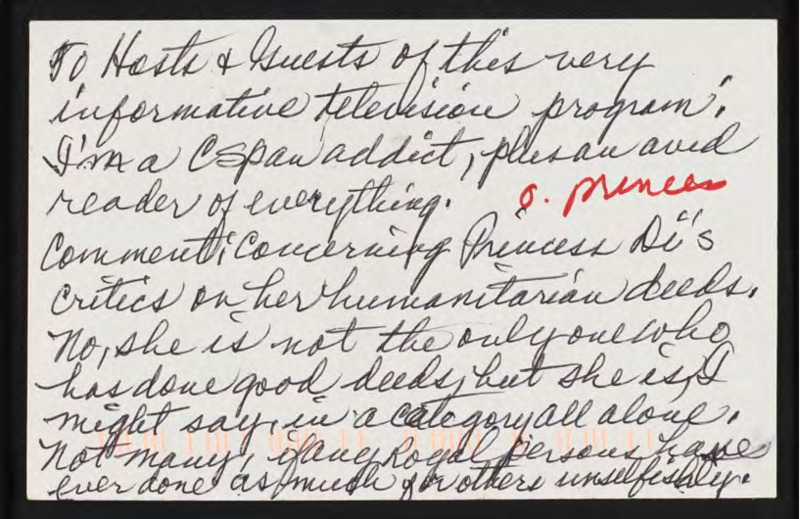 To Hosts & Guests of this very
informative television program.
I'm a CSpan addict, plus an avid
reader of everything.
o. princess
Comment; Concerning Princess Di's
critics on her humanitarian deeds.
No, she is not the only one who
has done good deeds, but she is, I
might say, in a category all alone.
Not many, if any Royal persons have
ever done as much for others unselfishly.